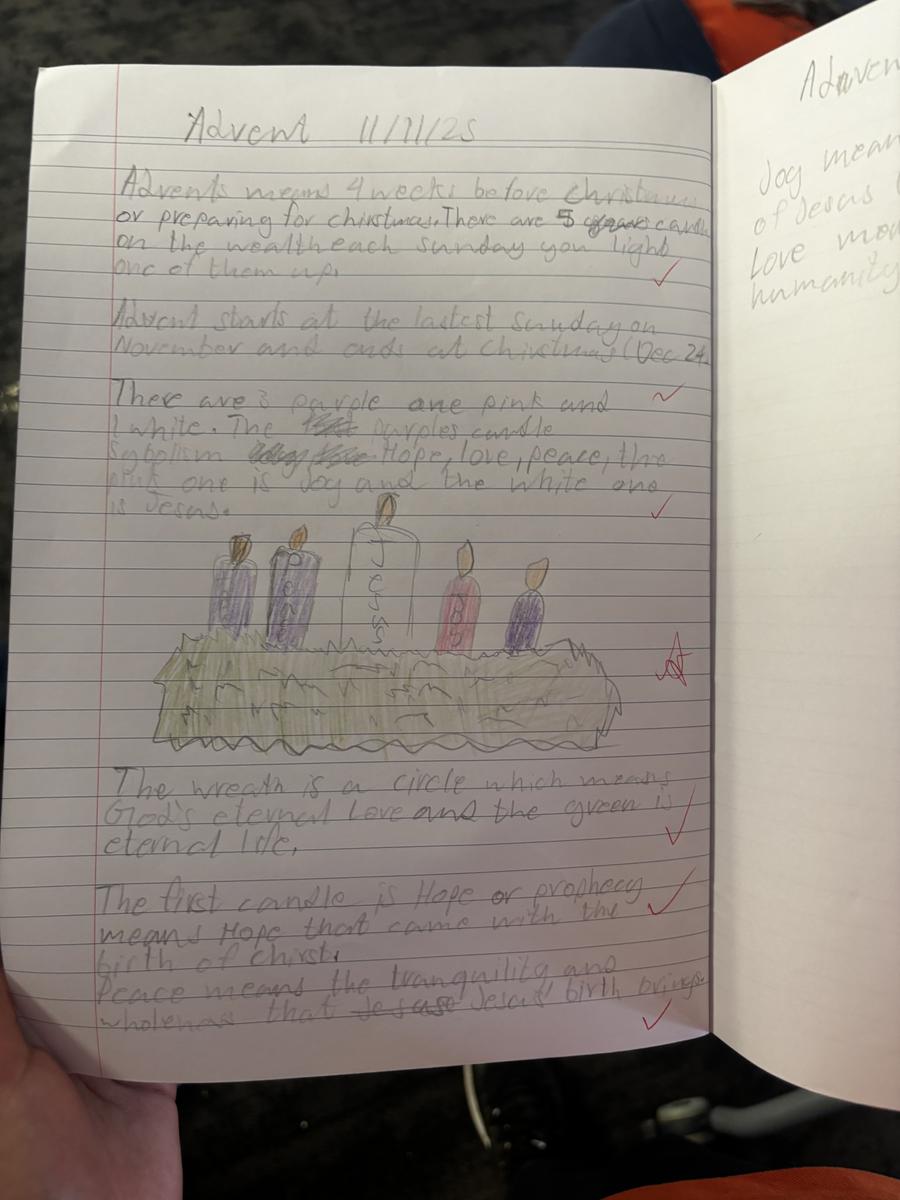 Advent 11/11/25
Advents means 4 weeks before Christmas
or preparing for chirstmas. There are 5 candl
on the wealth each sunday you light
one of them up.
Advent starts at the lastest sunday on
November and ends at Chirstmas (Dec 24.
There are 3 purple one pink and
1 white. The purples candle
Sybolism Hope, love, peace, the
pink one is Joy and the white one
is Jesus.
Peace
Jesus
Joy
The wreath is a circle which means
God's eternal Love and the green is
eternal life.
The first candle is Hope or prophecy
means Hope that came with the
birth of Chirst.
Peace means the tranquility and
wholenas that Jesus' birth brings.
Adven
Joy mean
of Jesus
Love
humanity